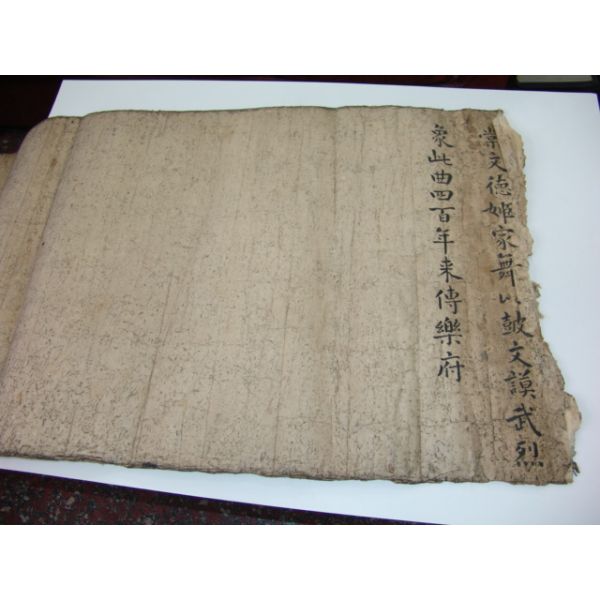 崇文德姬家舞以皷文謨武烈
象此曲四百年来傳樂府